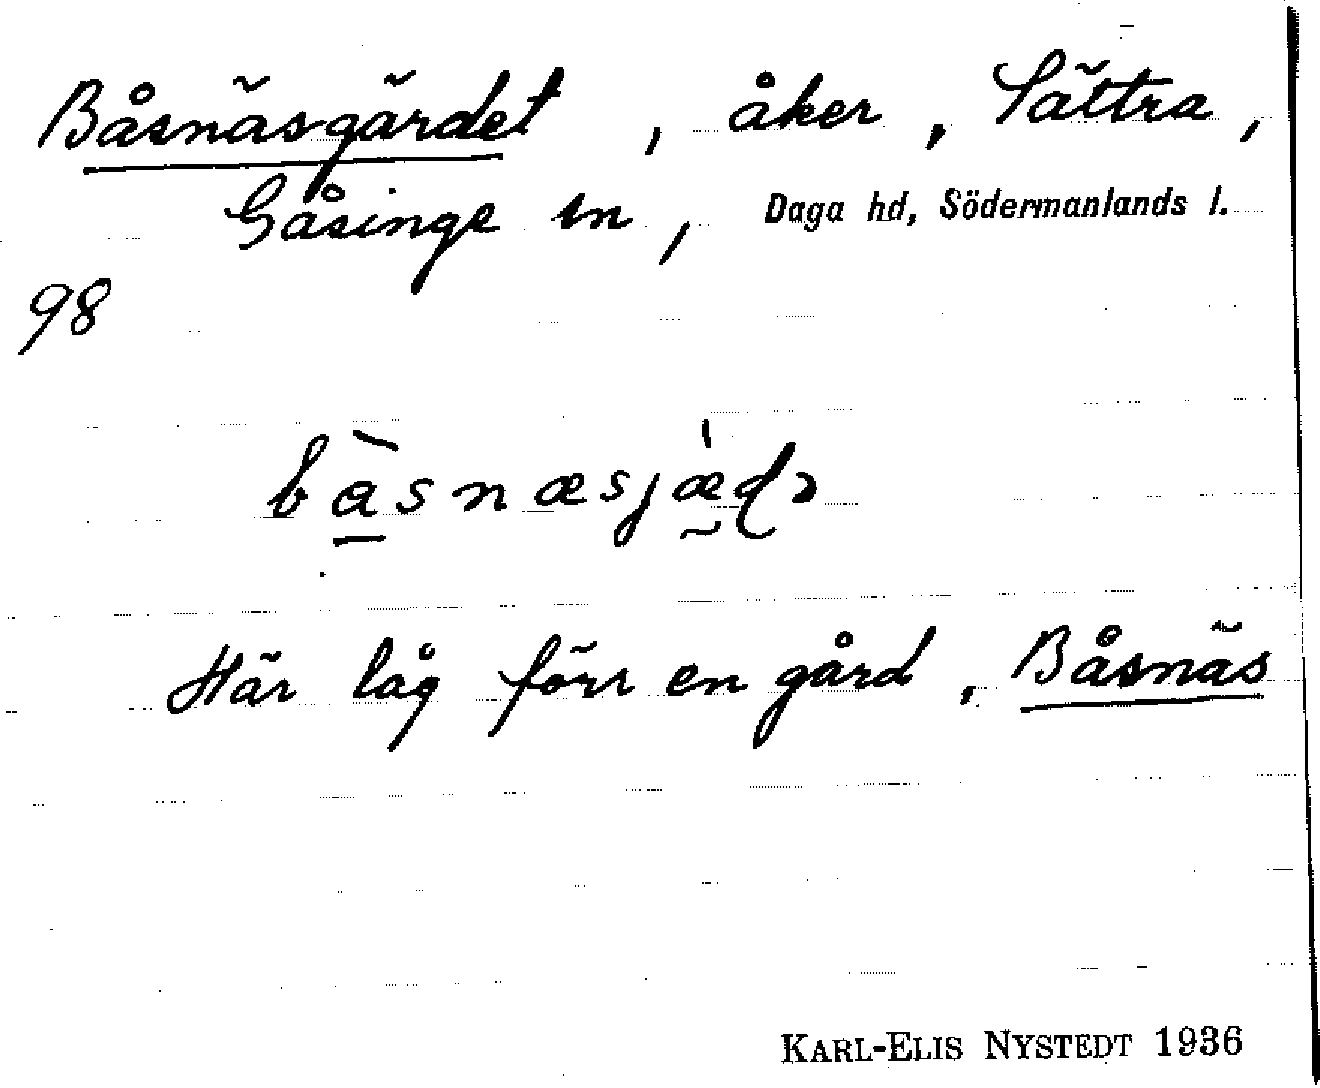 Båsnäsgärdet, åker, Sättra,
Gåsinge sn, Daga hd, Södermanlands l.
98
bàsnæsjæ̀dɂ
Här låg förr en gård, Båsnäs
KARL-ELIS NYSTEDT 1936